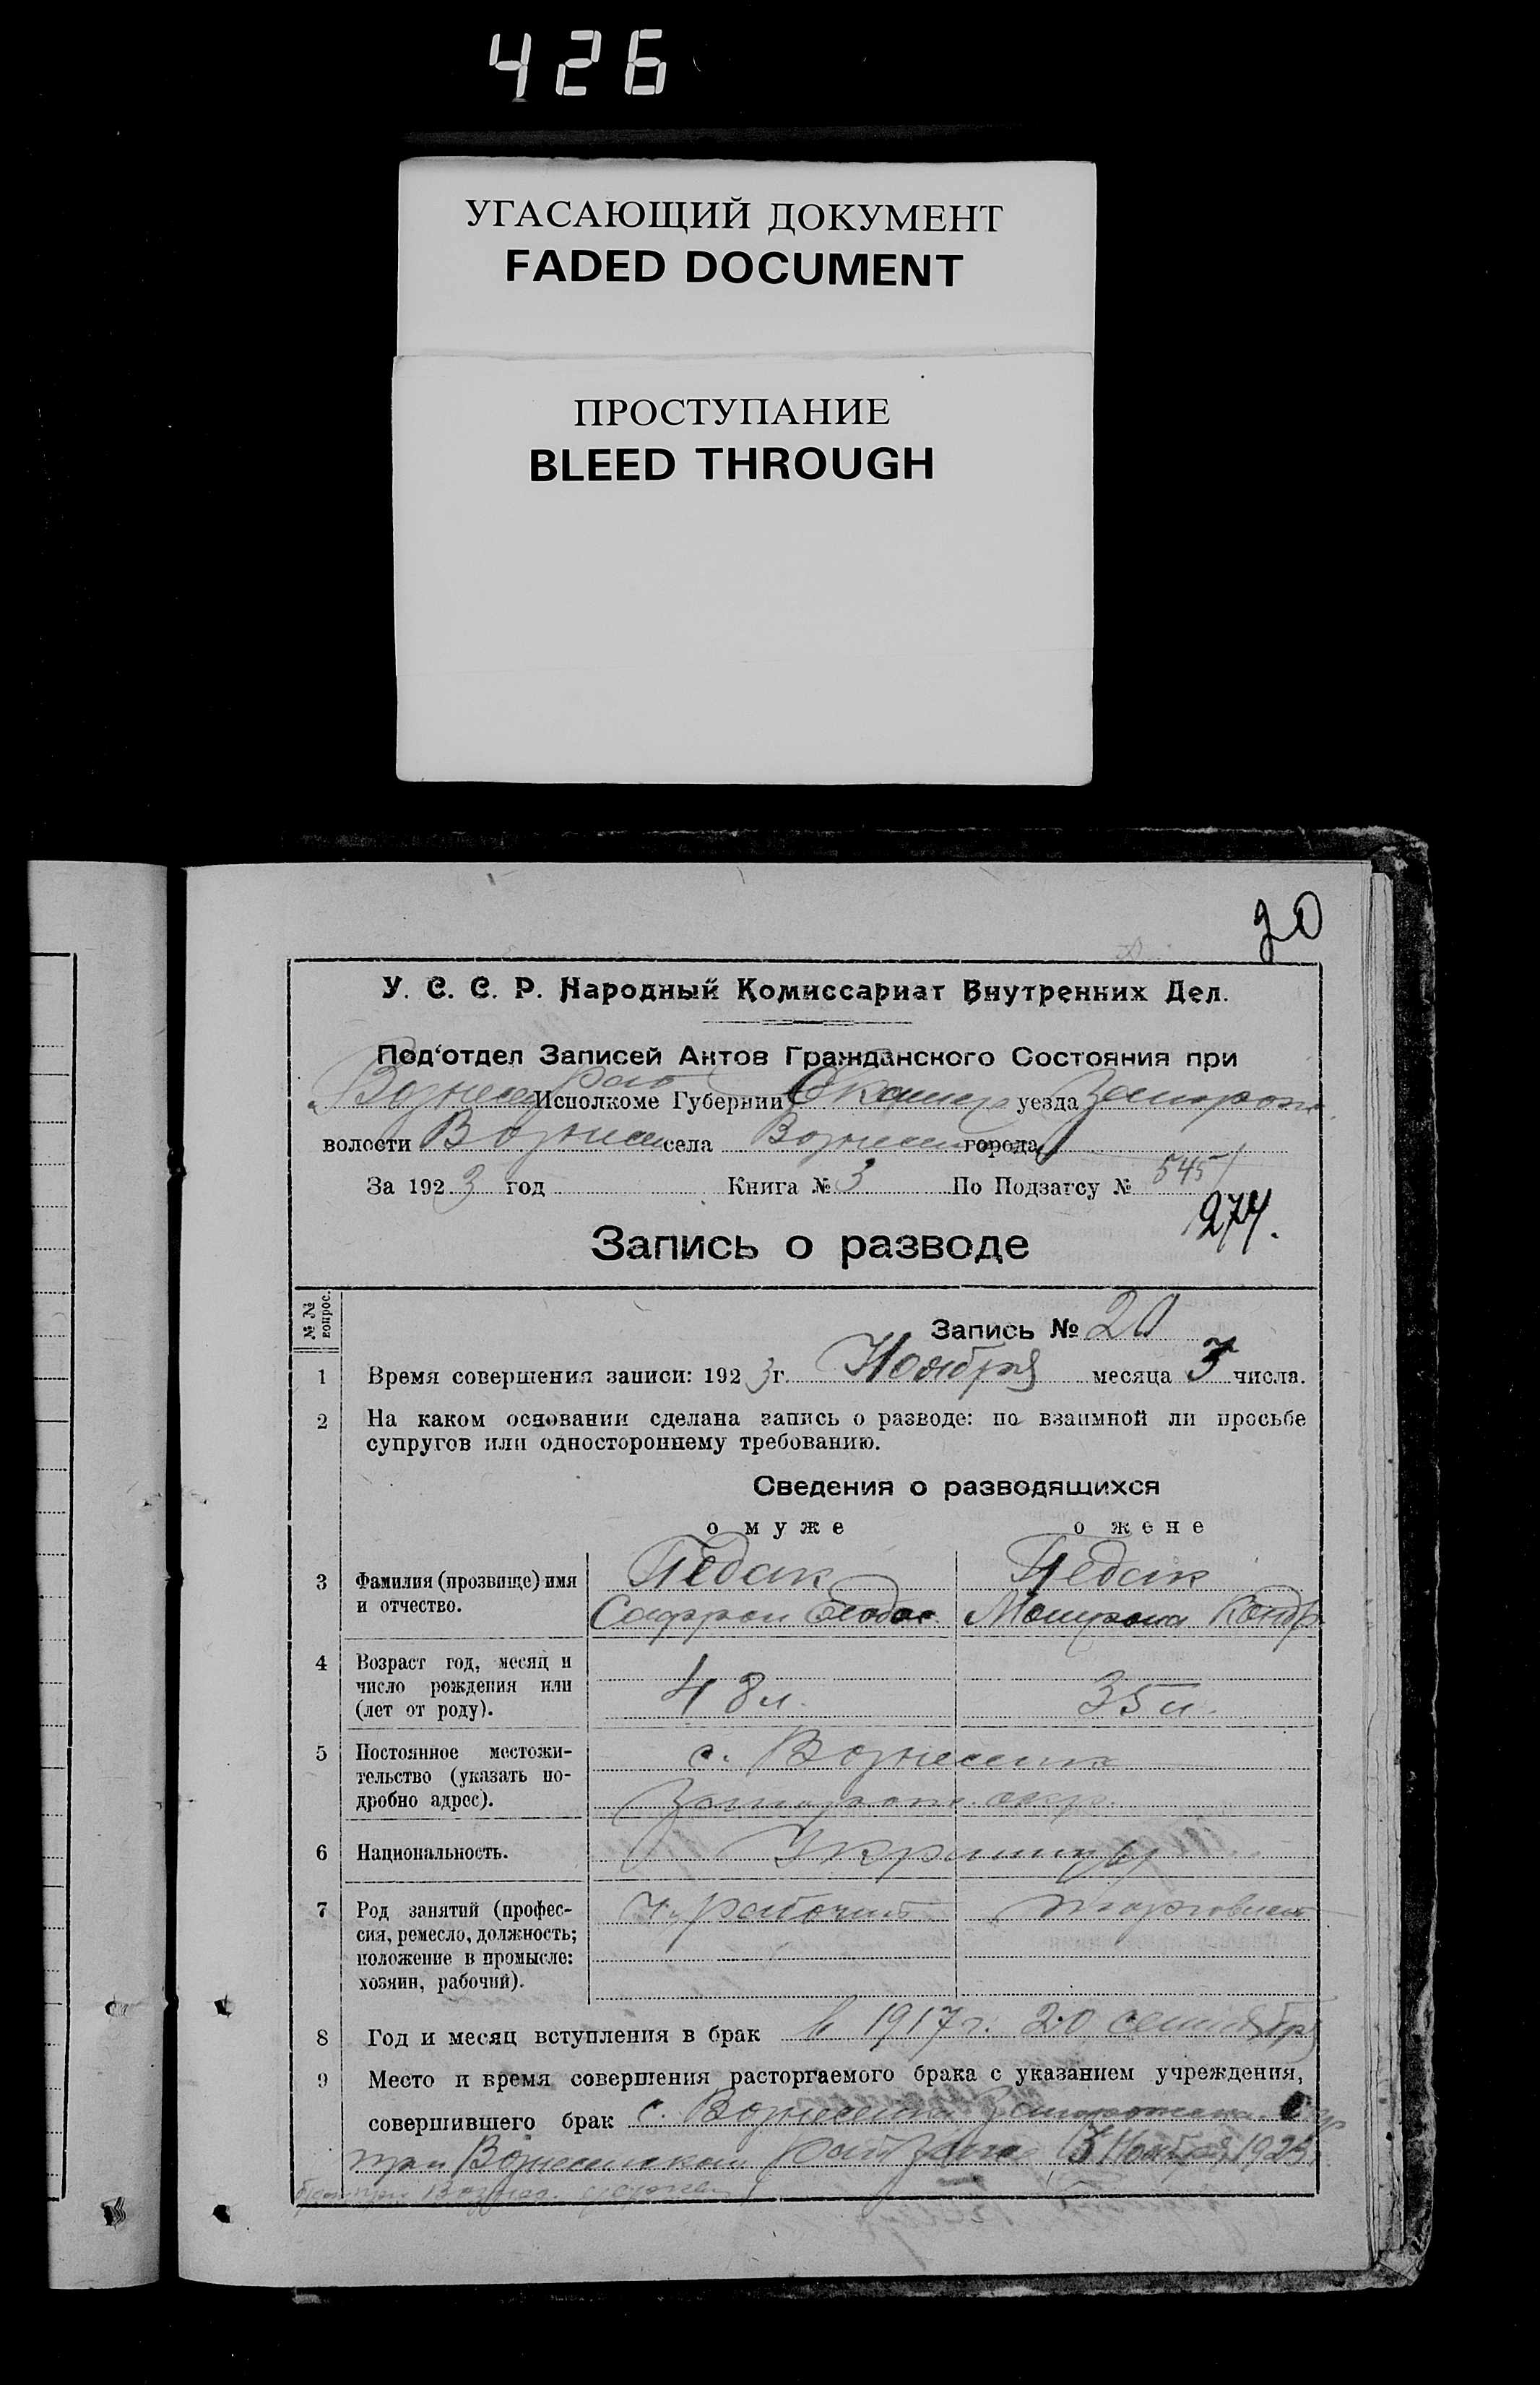 426
УГАСАЮЩИЙ ДОКУМЕНТ
FADED DOCUMENT
ПРОСТУПАНИЕ
BLEED THROUGH
20
У. С. С. Р. Народный Комиссариат Внутренних Дел.
Под‘отдел Записей Актов Гражданского Состояния при
Вознес рай Исполкоме Губернии Екатер уезда Запорож
волости Вознес села Вознесен города
За 1923 год Книга № 3 По Подзагсу № 545
274.
Запись о разводе
№ № вопрос.
Запись № 20
1 Время совершения записи: 1923 г. Ноября месяца 3 числа.
2 На каком основании сделана запись о разводе: по взаимной ли просьбе
супругов или одностороннему требованию.
Сведения о разводящихся
о муже о жене
3 Фамилия (прозвище) имя Педак Педак
и отчество. Сафрон Феодос Мотрона Кондр
4 Возраст год, месяц и
число рождения или 48 л. 35 л.
(лет от роду).
5 Постоянное местожи- с. Вознесенка
тельство (указать по-
дробно адрес). Запорож. окр.
6 Национальность. Украинцы
7 Род занятий (профес- рабочий торговля
сия, ремесло, должность;
положение в промысле:
хозяин, рабочий).
8 Год и месяц вступления в брак в 1917 г. 20 сентября
9 Место и время совершения расторгаемого брака с указанием учреждения,
совершившего брак с. Вознесенка Запорожск. окр
при Вознесенском Райзагсе 3 Ноября 1923
при Вознес. церкви